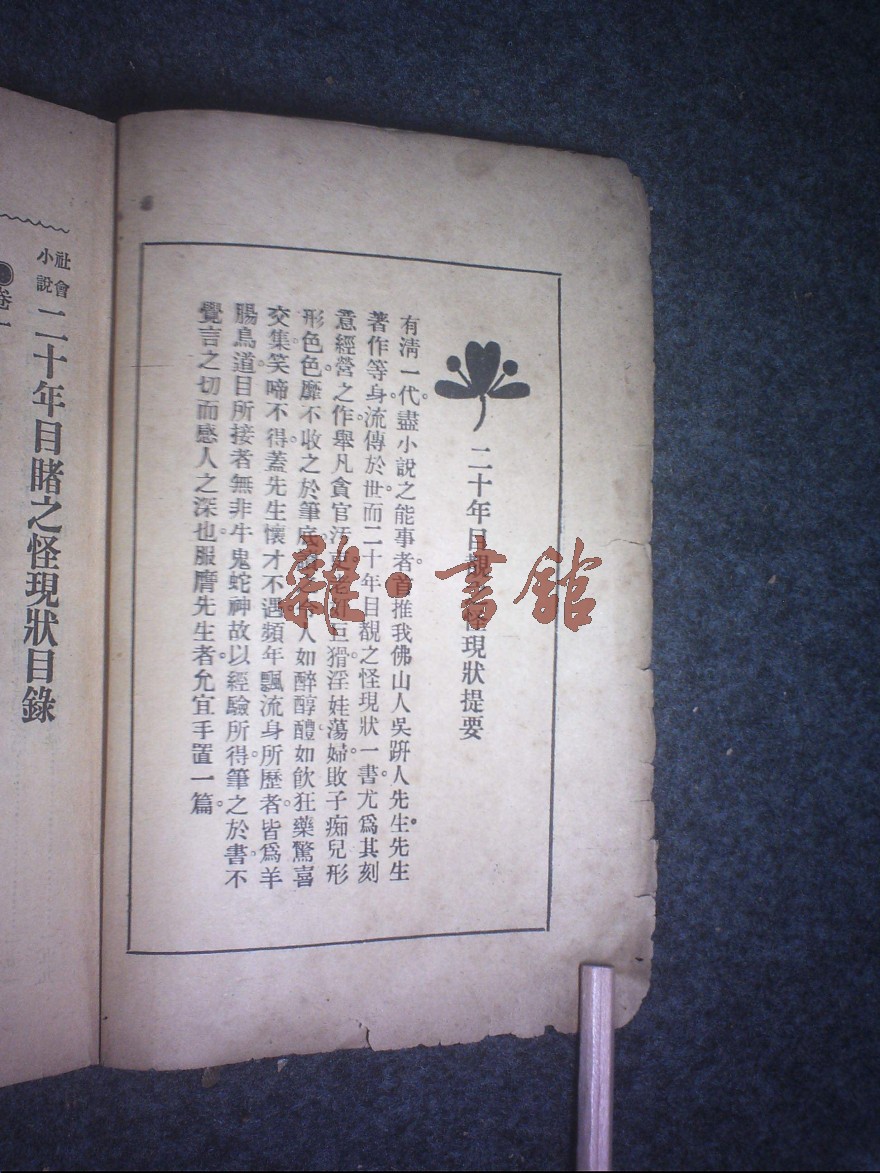 二十年目覩怪現狀提要
有清一代。盡小說之能事者。首推我佛山人吳趼人先生。先生
著作等身。流傳於世。而二十年目覩之怪現狀一書。尤爲其刻
意經營之作。舉凡貪官汚巨猾。淫娃蕩婦。敗子痴兒。形
形色色。靡不收之於筆底人如醉醇醴。如飮狂藥。驚喜
交集。笑啼不得。蓋先生懷才不遇。頻年飄流。身所歷者。皆爲羊
腸鳥道。目所接者。無非牛鬼蛇神。故以經驗所得。筆之於書。不
覺言之切而感人之深也。服膺先生者。允宜手置一篇。
社會
小說
二十年目睹之怪現狀目錄
●卷一
雜·書館